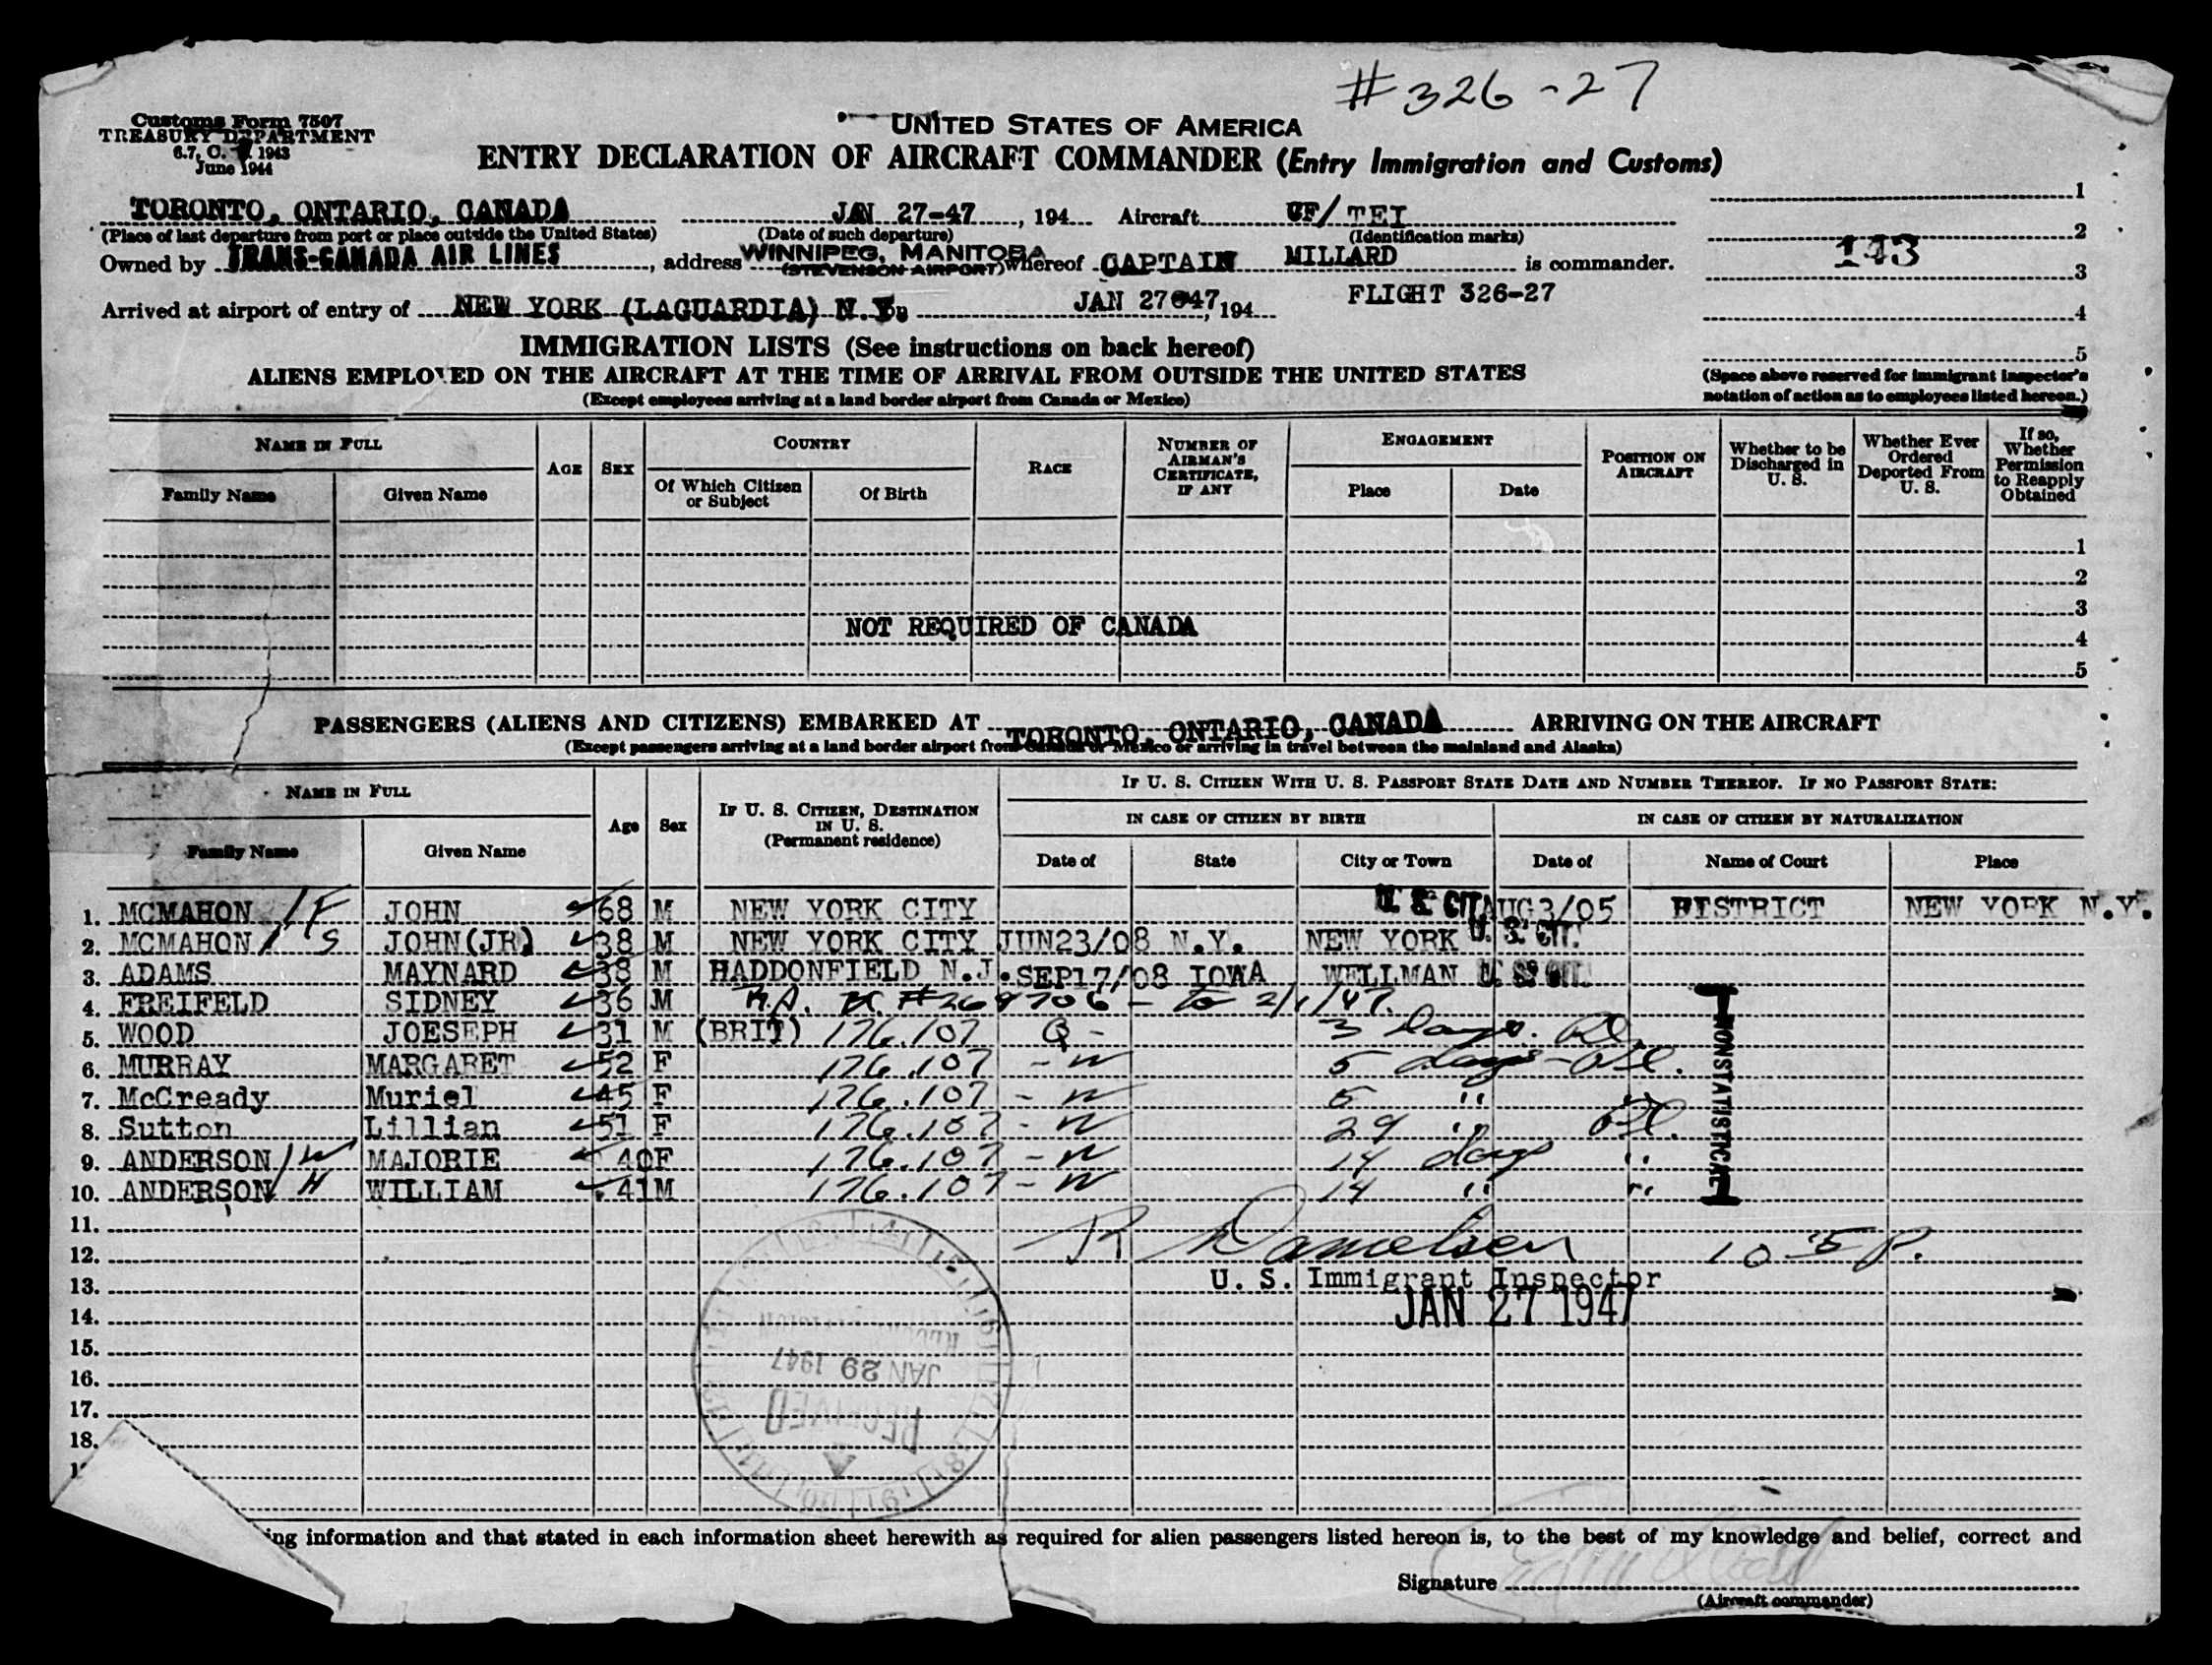 #326-27
Customs Form 7507
TREASURY DEPARTMENT
1943
June 1944
UNITED STATES OF AMERICA
ENTRY DECLARATION OF AIRCRAFT COMMANDER (Entry Immigration and Customs)
TORONTO, ONTARIO, CANADA JAN 27-47, 194 Aircraft CF/ TEI 1
(Place of last departure from port or place outside the United States) (Date of such departure) (Identification marks)
2
Owned by TRANS-CANADA AIR LINES, address WINNIPEG, MANITOBA (STEVENSON AIRPORT) whereof CAPTAIN MILLARD is commander.
143
3
Arrived at airport of entry of NEW YORK (LAGUARDIA) N.Y. JAN 27 47, 194 FLIGHT 326-27
4
IMMIGRATION LISTS (See instructions on back hereof)
5
ALIENS EMPLOYED ON THE AIRCRAFT AT THE TIME OF ARRIVAL FROM OUTSIDE THE UNITED STATES
(Space above reserved for immigrant inspector's notation of action as to employees listed hereon.)
(Except employees arriving at a land border airport from Canada or Mexico)
NAME IN FULL AGE SEX COUNTRY RACE NUMBER OF AIRMAN'S CERTIFICATE, IF ANY ENGAGEMENT POSITION ON AIRCRAFT Whether to be Discharged in U. S. Whether Ever Ordered Deported From U. S. If so, Whether Permission to Reapply Obtained
Family Name Given Name Of Which Citizen or Subject Of Birth Place Date
1
2
3
NOT REQUIRED OF CANADA
4
5
PASSENGERS (ALIENS AND CITIZENS) EMBARKED AT TORONTO, ONTARIO, CANADA ARRIVING ON THE AIRCRAFT
(Except passengers arriving at a land border airport from Canada or Mexico or arriving in travel between the mainland and Alaska)
NAME IN FULL Age Sex IF U. S. CITIZEN, DESTINATION IN U. S. (Permanent residence) IF U. S. CITIZEN WITH U. S. PASSPORT STATE DATE AND NUMBER THEREOF. IF NO PASSPORT STATE:
IN CASE OF CITIZEN BY BIRTH IN CASE OF CITIZEN BY NATURALIZATION
Family Name Given Name Date of State City or Town Date of Name of Court Place
1. MCMAHON / F JOHN 68 M NEW YORK CITY U. S. CIT. AUG3/05 DISTRICT NEW YORK N.Y.
2. MCMAHON / S JOHN(JR) 38 M NEW YORK CITY JUN23/08 N.Y. NEW YORK U. S. CIT.
3. ADAMS MAYNARD 38 M HADDONFIELD N.J. SEP17/08 IOWA WELLMAN U. S. CIT.
4. FREIFELD SIDNEY 36 M #269706 - to 2/1/47.
5. WOOD JOESEPH 31 M (BRIT) 176.107 Q - 3 days.
6. MURRAY MARGARET 52 F 176.107 - W 5 days
7. McCready Muriel 45 F 176.107 - W 5 "
8. Sutton Lillian 51 F 176.107 - W 29 "
9. ANDERSON / W MAJORIE 40F 176.107 - W 14 days "
10. ANDERSON / H WILLIAM 41M 176.107 - W 14 " "
NONSTATISTICAL
11.
12. R Danielsen 10 5 P.
13. U. S. Immigrant Inspector
JAN 27 1947
14.
15.
RECEIVED
JAN 29 1947
16.
17.
18.
ing information and that stated in each information sheet herewith as required for alien passengers listed hereon is, to the best of my knowledge and belief, correct and
Signature
(Aircraft commander)